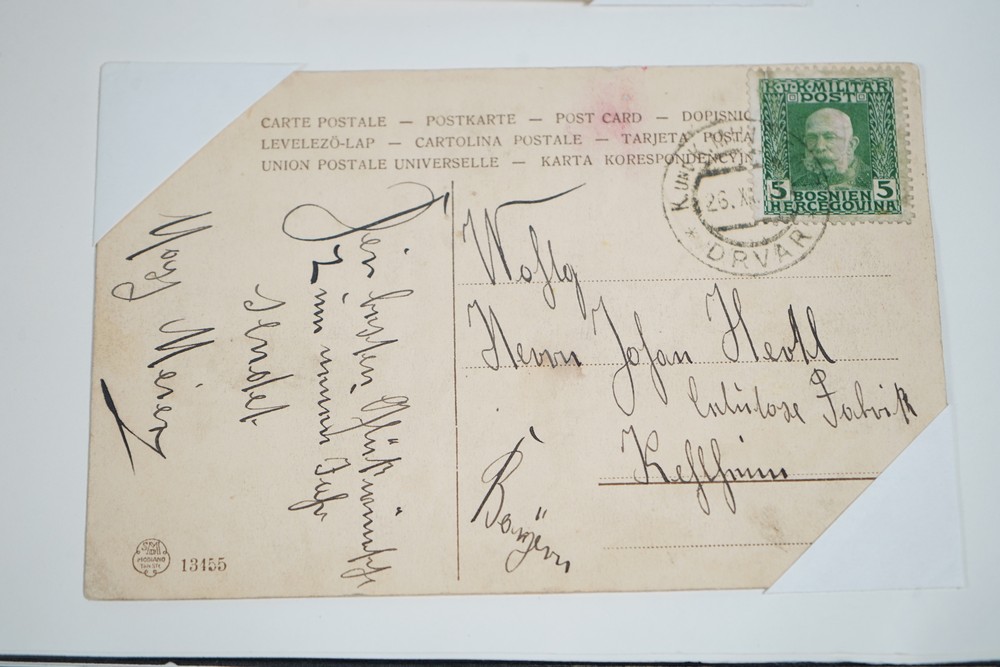 CARTE POSTALE — POSTKARTE — POST CARD — DOPISNIC
LEVELEZŐ-LAP — CARTOLINA POSTALE — TARJETA POSTA
UNION POSTALE UNIVERSELLE — KARTA KORESPONDENCYJN
K.U.K.MILITÄR
POST
5 BOSNIEN 5
HERCEGOVINA
K. UND K.
26. X
* DRVAR
Die besten Glückwünsche
Zum neuen Jahr
Sendet
Wohlg
Herrn Johan
Celulose Fabrik
Kehlheim
Bayern
MODIANO
13455